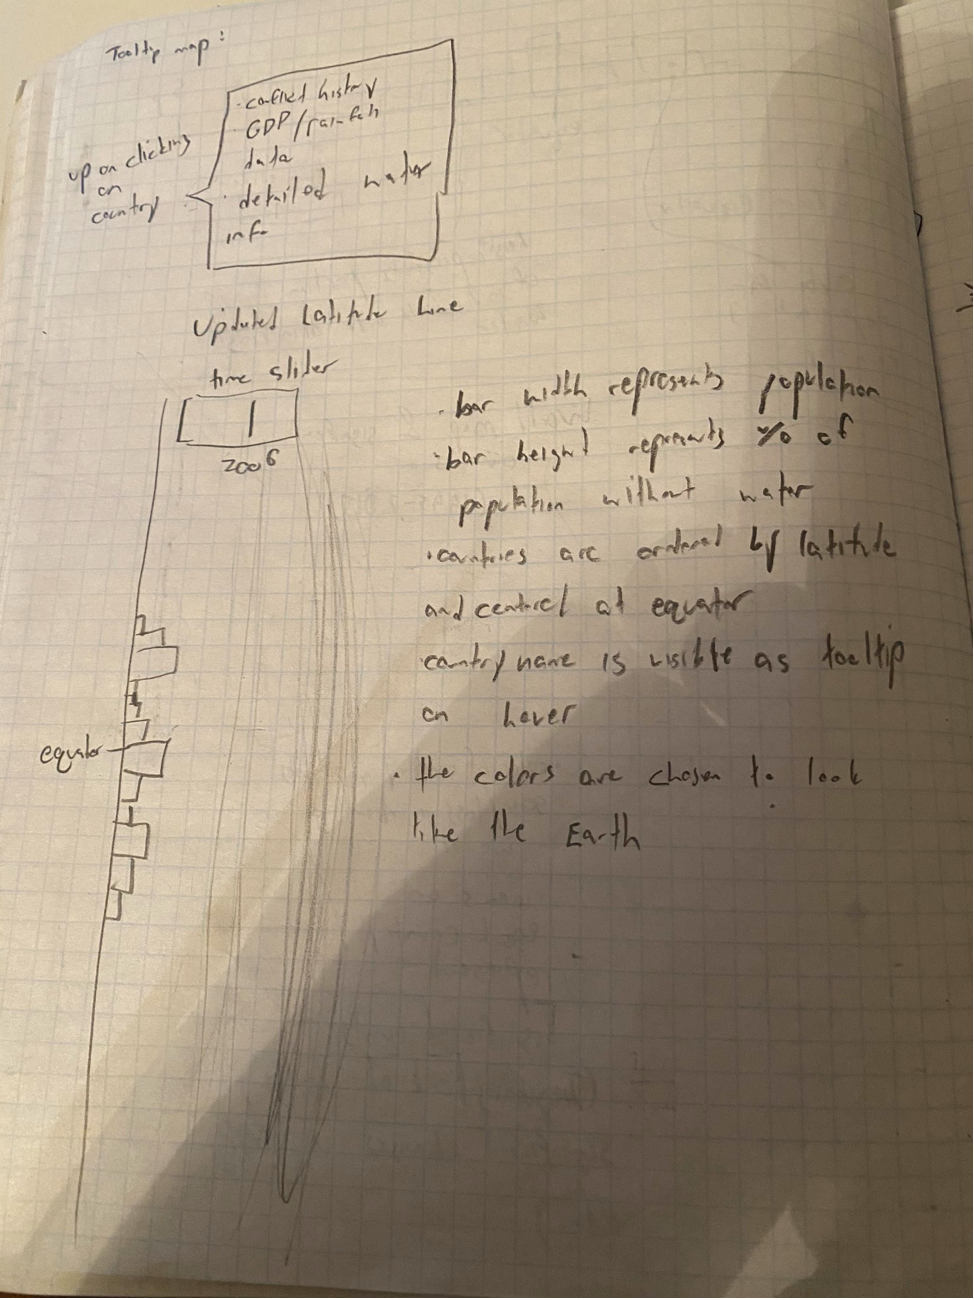 Tooltip map:
upon clicking
on
country
· conflict history
· GDP/rainfall
data
· detailed water
info
Updated Latitude Line
time slider
2006
equator
· bar width represents population
· bar height represents % of
population without water
· countries are ordered by latitude
and centered at equator
· country name is visible as tooltip
on hover
· the colors are chosen to look
like the Earth